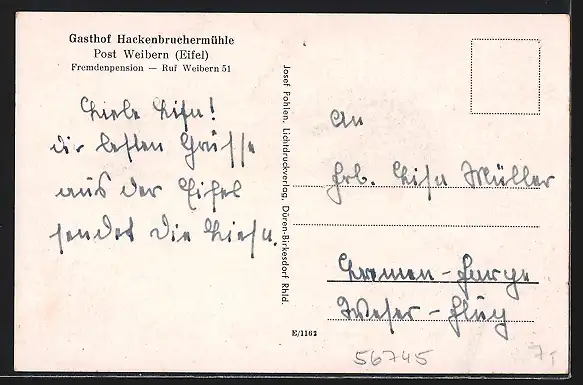 Gasthof Hackenbruchermühle
Post Weibern (Eifel)
Fremdenpension — Ruf Weibern 51
Liebe Lisa!
die besten Grüsse
aus der Eifel
sendet die
Josef Pohlen, Lichtdruckverlag, Düren-Birkesdorf Rhld.
E/1162
An
Frl. Lisa Müller
Bremen-Farge
Weser-Flug
56745